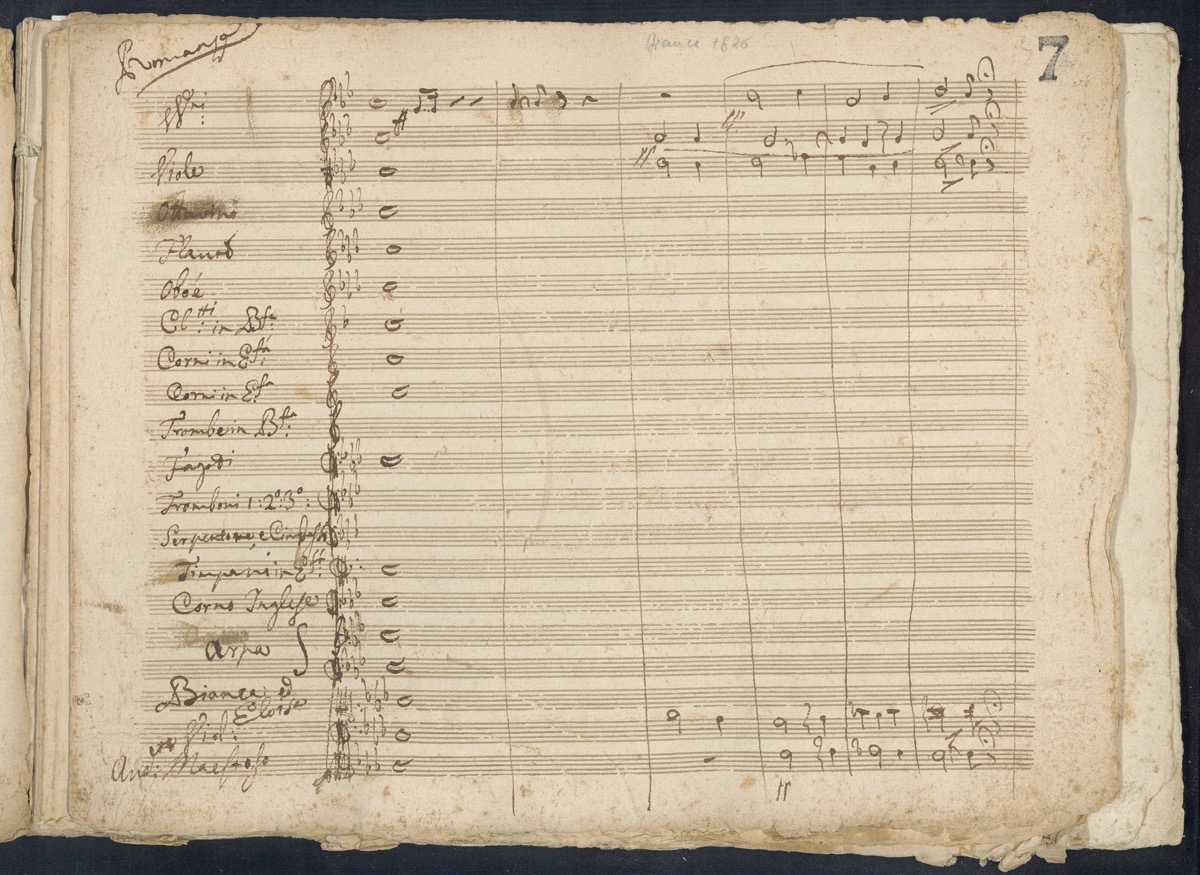 Romanza
Bianca 1826
7
VVni
Viole
Ottavino
Flauto
Oboé
Cl:tti in Bfa
Corni in Efa
Corni in Efa
Trombe in Bfa
Fagotti
Tromboni 1:2º:3º:
Serpentone, e Cimbasso
Timpani in Efa
Corno Inglese
Arpa
Bianca, ed
Eloisa
Viol:
And: Maestoso